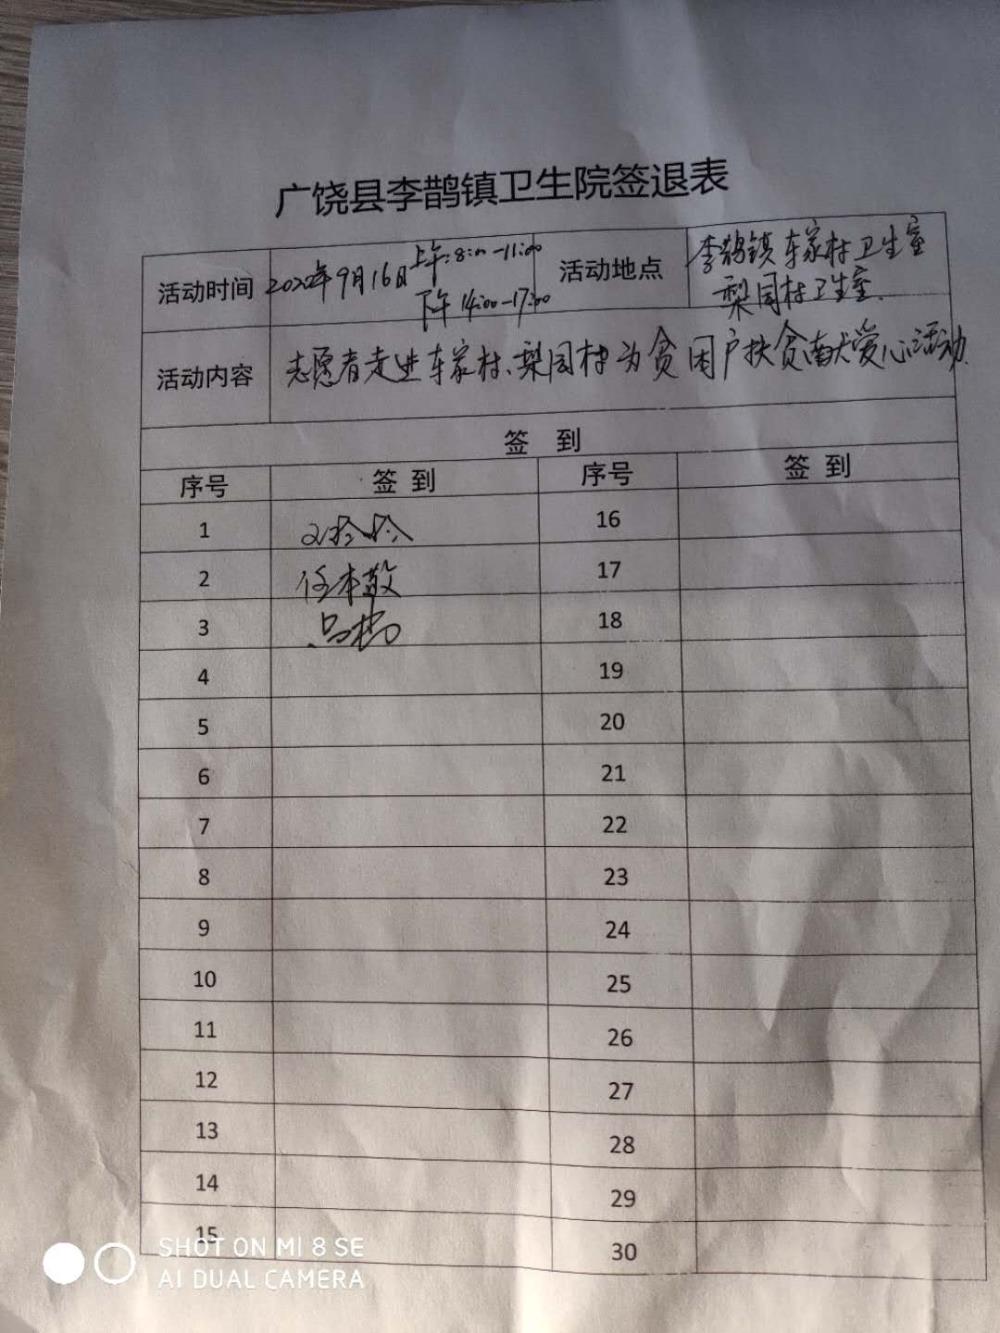 广饶县李鹊镇卫生院签退表
活动时间 2020年9月16日 上午:8:00-11:00 下午14:00-17:00 活动地点 李鹊镇车家村卫生室 梨园村卫生室.
活动内容 志愿者走进车家村、梨园村为贫困户扶贫献爱心活动.
签 到
序号 签 到 序号 签 到
1 16
2 任本敬 17
3 18
4 19
5 20
6 21
7 22
8 23
9 24
10 25
11 26
12 27
13 28
14 29
15 30
SHOT ON MI 8 SE
AI DUAL CAMERA